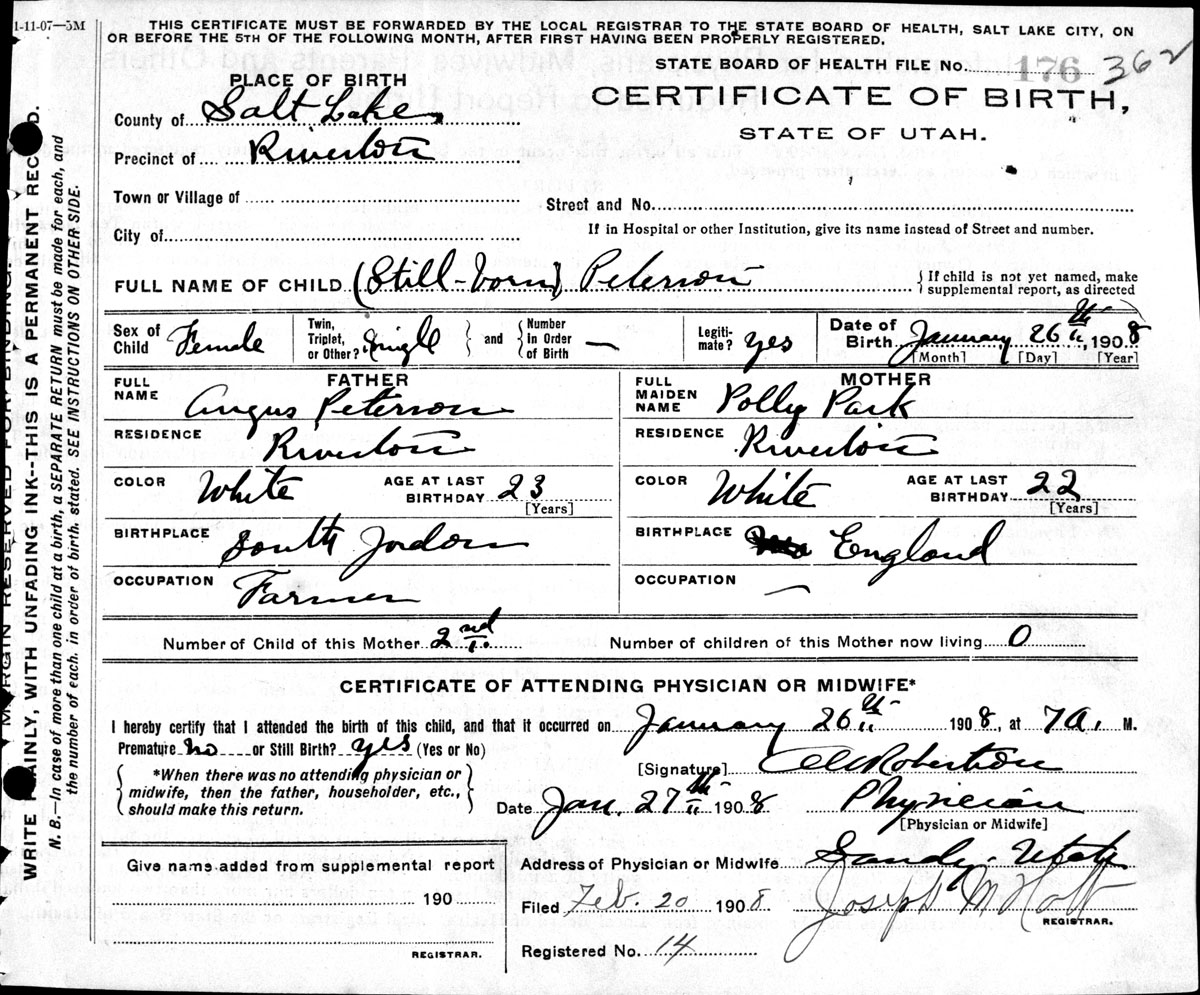 1-11-07--5M
THIS CERTIFICATE MUST BE FORWARDED BY THE LOCAL REGISTRAR TO THE STATE BOARD OF HEALTH, SALT LAKE CITY, ON
OR BEFORE THE 5TH OF THE FOLLOWING MONTH, AFTER FIRST HAVING BEEN PROPERLY REGISTERED.
STATE BOARD OF HEALTH FILE No. 176 362
PLACE OF BIRTH
CERTIFICATE OF BIRTH,
STATE OF UTAH.
County of Salt Lake
Precinct of Riverton
Town or Village of
Street and No.
City of
If in Hospital or other Institution, give its name instead of Street and number.
FULL NAME OF CHILD (Still-born) Peterson
If child is not yet named, make
supplemental report, as directed
Sex of Child Female
Twin, Triplet, or Other? Single and Number in Order of Birth —
Legiti-mate? yes
Date of Birth January 26th, 1908
[Month] [Day] [Year]
FATHER
FULL NAME Angus Peterson
RESIDENCE Riverton
COLOR White AGE AT LAST BIRTHDAY 23
[Years]
BIRTHPLACE South Jordon
OCCUPATION Farmer
MOTHER
FULL MAIDEN NAME Polly Park
RESIDENCE Riverton
COLOR White AGE AT LAST BIRTHDAY 22
[Years]
BIRTHPLACE England
OCCUPATION —
Number of Child of this Mother 2nd
Number of children of this Mother now living 0
CERTIFICATE OF ATTENDING PHYSICIAN OR MIDWIFE*
I hereby certify that I attended the birth of this child, and that it occurred on January 26th 1908, at 7 a. M.
Premature no or Still Birth? yes (Yes or No)
*When there was no attending physician or
midwife, then the father, householder, etc.,
should make this return.
[Signature] Robertson
Date Jan. 27th 1908 Physician
[Physician or Midwife]
Give name added from supplemental report
190
REGISTRAR.
Address of Physician or Midwife Sandy Utah
Filed Feb. 20 1908 Joseph M Holt
REGISTRAR.
Registered No. 14
MARGIN RESERVED FOR BINDING.
WRITE PLAINLY, WITH UNFADING INK--THIS IS A PERMANENT RECORD.
N. B.—In case of more than one child at a birth, a SEPARATE RETURN must be made for each, and
the number of each, in order of birth, stated. SEE INSTRUCTIONS ON OTHER SIDE.